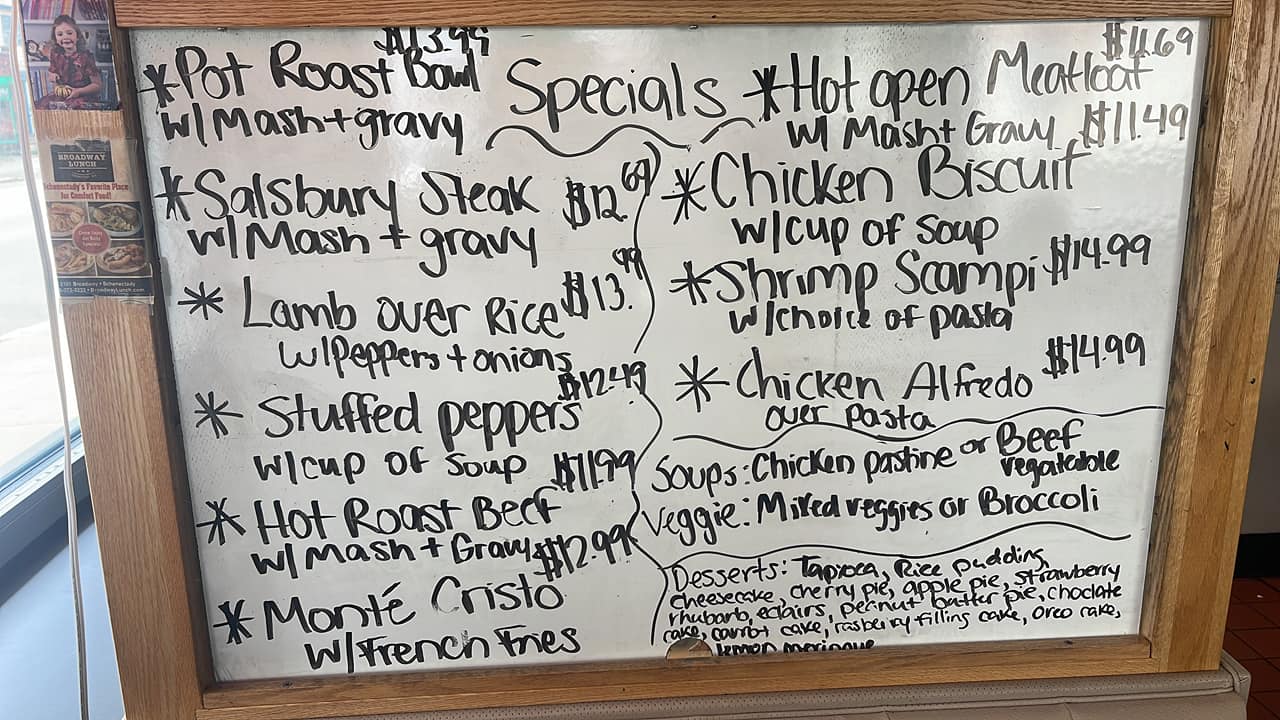 $13.99
*Pot Roast Bowl
w/Mash+gravy
Specials
*Salsbury Steak $12.69
w/Mash + gravy
* Lamb over Rice $13.99
w/Peppers + onions
* Stuffed peppers $12.49
w/cup of soup
* Hot Roast Beef $11.99
w/Mash + Gravy
* Monté Cristo $12.99
w/French Fries
$11.69
*Hot open Meatloaf
w/ Mash+ Gravy
*Chicken Biscuit $11.49
w/cup of soup
*Shrimp Scampi $14.99
w/choice of pasta
* Chicken Alfredo $14.99
over pasta
Soups: Chicken pastine or Beef
vegatable
Veggie: Mixed veggies or Broccoli
Desserts: Tapioca, Rice pudding,
cheesecake, cherry pie, apple pie, strawberry
rhubarb, eclairs, peanut butter pie, choclate
cake, carrot cake, rasberry filling cake, oreo cake,
lemon meringue
BROADWAY
LUNCH
Schenectady's Favorite Place
for Comfort Food!
Broadway • Schenectady
BroadwayLunch.com